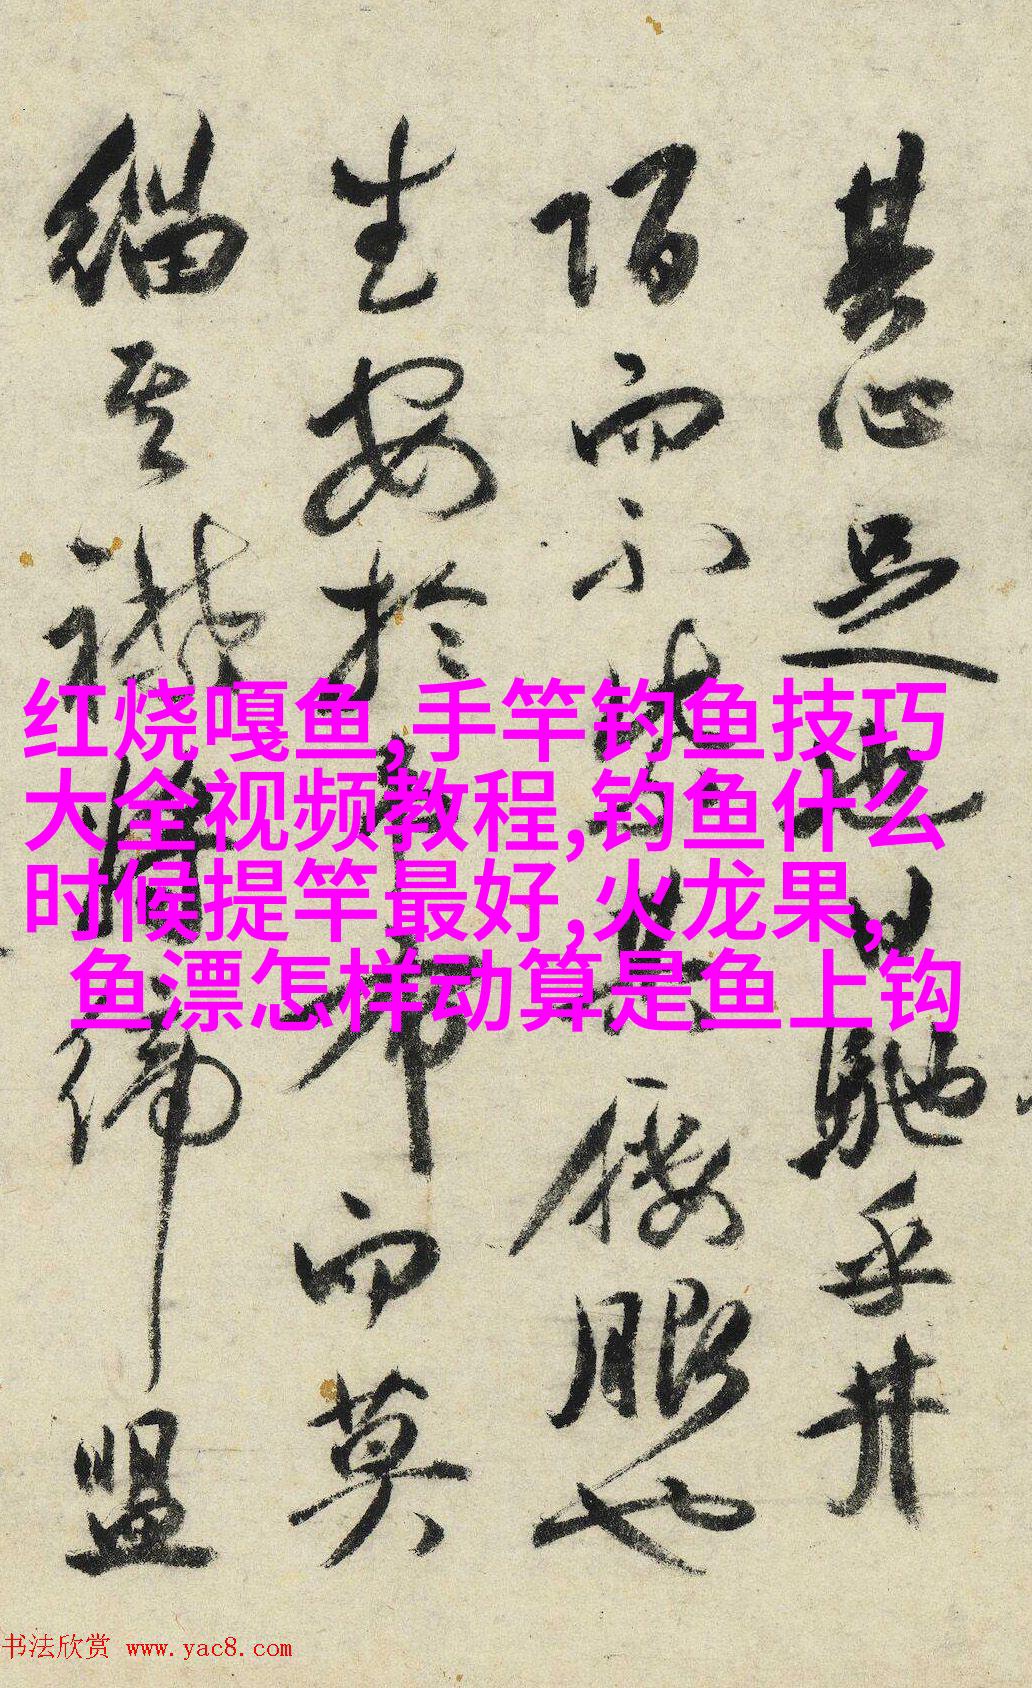 其心足日馳乎井
陌而不其暇也
生安於韋布而莫
緇其襟脩締盟
红烧嘎鱼,手竿钓鱼技巧
大全视频教程,钓鱼什么
时候提竿最好,火龙果,
鱼漂怎样动算是鱼上钩
书法欣赏 www.yac8.com